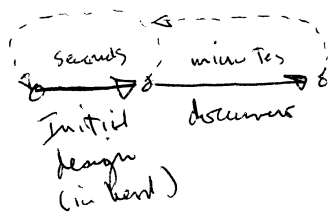 seconds
minutes
Initial
design
(in head)
document